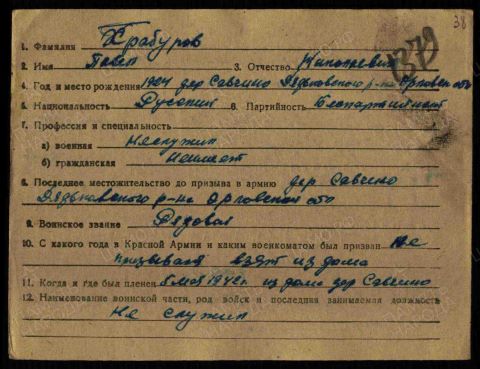 38
1379
1. Фамилия Храбуров
2. Имя Павел 3. Отчество
4. Год и место рождения 1924 дер Савчино Дядьковского р-на Орловск обл
5. Национальность Русский 6. Партийность Безпартийност
7. Профессия и специальность
а) военная Неслужил
б) гражданская Неимеет
8. Последнее местожительство до призыва в армию дер Савчино
Дядьковского р-на Орловской обл
9. Воинское звание Рядовой
10. С какого года в Красной Армии и каким военкоматом был призван Не
призывался взят из дома
11. Когда и где был пленен 5 мая 1942г. из дома дер Савчино
12. Наименование воинской части, род войск и последняя занимаемая должность
Не служил